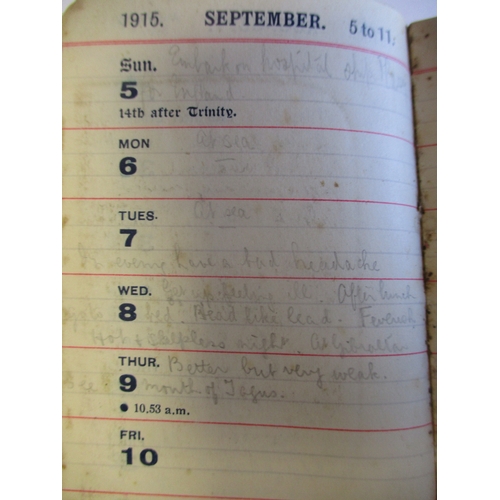 1915. SEPTEMBER. 5 to 11.
Sun. Embark on hospital ship
5 for England
14th after Trinity.
MON At sea
6
TUES. At sea
7
In evening have a bad headache
WED. Get up feeling ill. After lunch
8 go to bed. Head like lead. Feverish
Hot & sleepless night. At Gibraltar
THUR. Better but very weak.
See 9 mouth of Tagus.
● 10.53 a.m.
FRI.
10